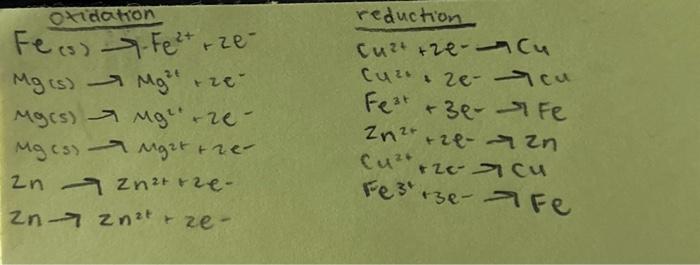 oxidation
Fe(s) → Fe²⁺ + 2e⁻
Mg(s) → Mg²⁺ + 2e⁻
Mg(s) → Mg²⁺ + 2e⁻
Mg(s) → Mg²⁺ + 2e⁻
Zn → Zn²⁺ + 2e⁻
Zn → Zn²⁺ + 2e⁻
reduction
Cu²⁺ + 2e⁻ → Cu
Cu²⁺ + 2e⁻ → Cu
Fe³⁺ + 3e⁻ → Fe
Zn²⁺ + 2e⁻ → Zn
Cu²⁺ + 2e⁻ → Cu
Fe³⁺ + 3e⁻ → Fe